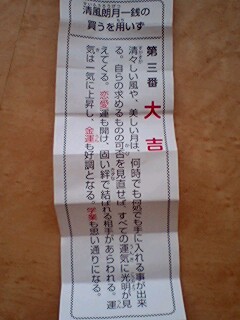 清風朗月一銭の
買うを用いず
第三番 大吉
清々しい風や、美しい月は、何時でも何処でも手に入れる事が出来
る。自らの求めるものの可否を見直せば、すべての運気に光明が見
えてくる。恋愛運も開け、固い絆で結ばれる相手があらわれる。運
気は一気に上昇し、金運も好調となる。学業も思い通りになる。